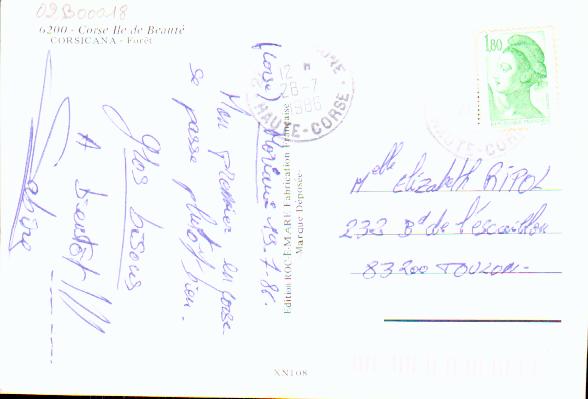 09.B00018
6200 - Corse Ile de Beauté
CORSICANA - Forêt
(Corse) Moriani 19.7.86.
Mon premier en corse
se passe plutôt bien.
gros bisous
A bientôt !!!
Sabine
Edition ROC-E-MARE Fabrication Française
Marque Déposée
XN108
12 H
28-7
1986
HAUTE-CORSE
1,80
HAUTE-COR
Melle Elizabeth RIPOL
233 Bd de l'escaillon
83200 TOULON-